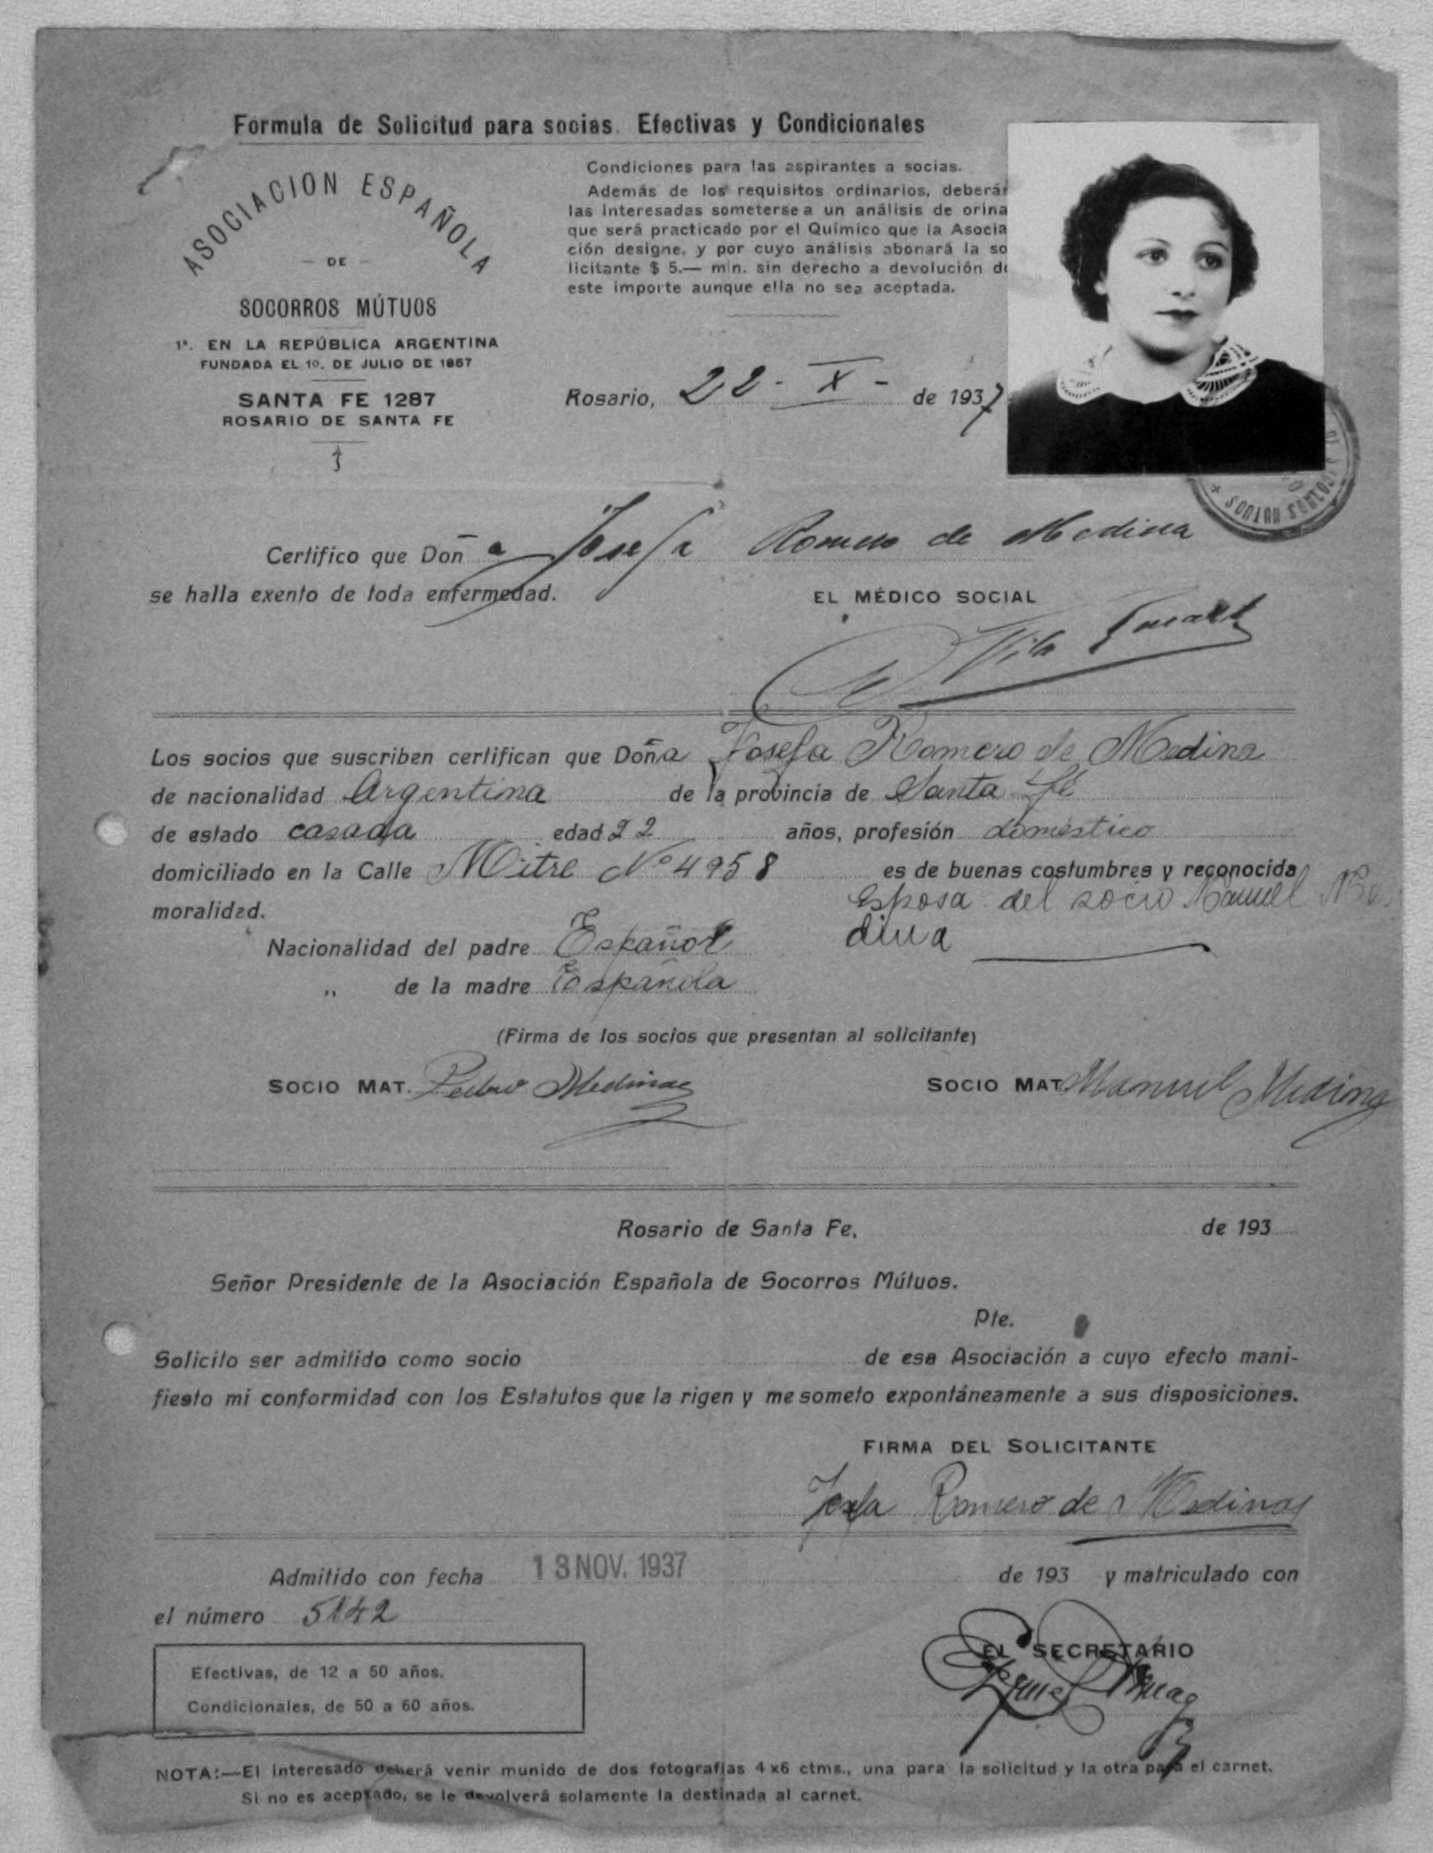 Formula de Solicitud para socias. Efectivas y Condicionales
ASOCIACION ESPAÑOLA
DE
SOCORROS MÚTUOS
1ª. EN LA REPÚBLICA ARGENTINA
FUNDADA EL 1o. DE JULIO DE 1857
SANTA FE 1287
ROSARIO DE SANTA FE
Condiciones para las aspirantes a socias.
Además de los requisitos ordinarios, deberán
las interesadas someterse a un análisis de orina
que será practicado por el Químico que la Asocia
ción designe, y por cuyo análisis abonará la so
licitante $ 5.— m|n. sin derecho a devolución de
este importe aunque ella no sea aceptada.
Rosario, 22 - X - de 1937
SOCORROS MUTUOS
Certifico que Doña Josefa Romero de Medina
se halla exento de toda enfermedad.
EL MÉDICO SOCIAL
Vila
Los socios que suscriben certifican que Doña Josefa Romero de Medina
de nacionalidad Argentina de la provincia de Santa Fé
de estado casada edad 22 años, profesión doméstico
domiciliado en la Calle Mitre Nº 4958 es de buenas costumbres y reconocida
moralidad. esposa del socio Manuel Me
dina
Nacionalidad del padre Español
„ de la madre Española
(Firma de los socios que presentan al solicitante)
SOCIO MAT. Pedro Medina SOCIO MAT Manuel Medina
Rosario de Santa Fe, de 193
Señor Presidente de la Asociación Española de Socorros Mútuos.
Pte.
Solicito ser admitido como socio de esa Asociación a cuyo efecto mani-
fiesto mi conformidad con los Estatutos que la rigen y me someto expontáneamente a sus disposiciones.
FIRMA DEL SOLICITANTE
Josefa Romero de Medina
Admitido con fecha 13 NOV. 1937 de 193 y matriculado con
el número 5142
EL SECRETARIO
Efectivas, de 12 a 50 años.
Condicionales, de 50 a 60 años.
NOTA:—El interesado deberá venir munido de dos fotografías 4x6 ctms., una para la solicitud y la otra para el carnet.
Si no es aceptado, se le devolverá solamente la destinada al carnet.